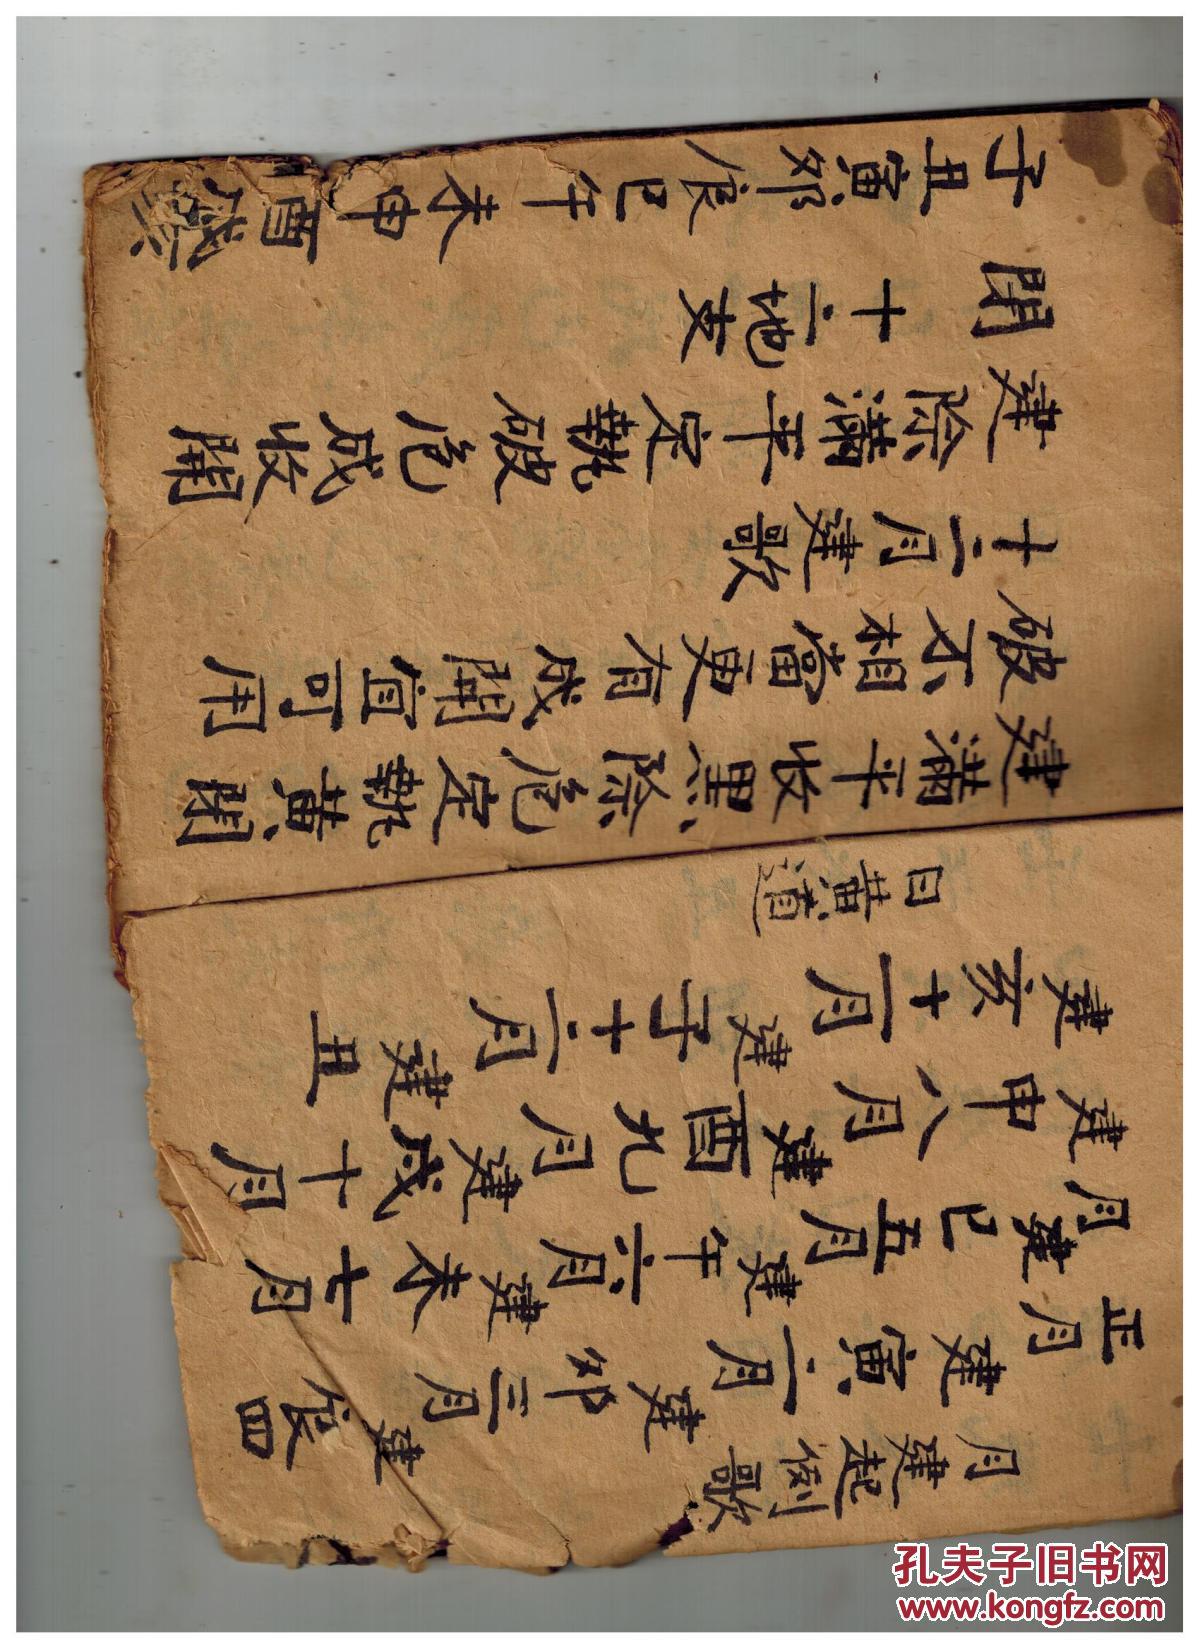 月建起例歌
正月建寅二月建卯三月建辰四
月建巳五月建午六月建未七月
建申八月建酉九月建戌十月
建亥十一月建子十二月建丑
日黄道
建滿平收黑除危定執黄閉
破不相當更有成開宜可用
十二月建歌
建除滿平定執破危成收開
閉 十二地支
子丑寅卯辰巳午未申酉戌亥
孔夫子旧书网
www.kongfz.com